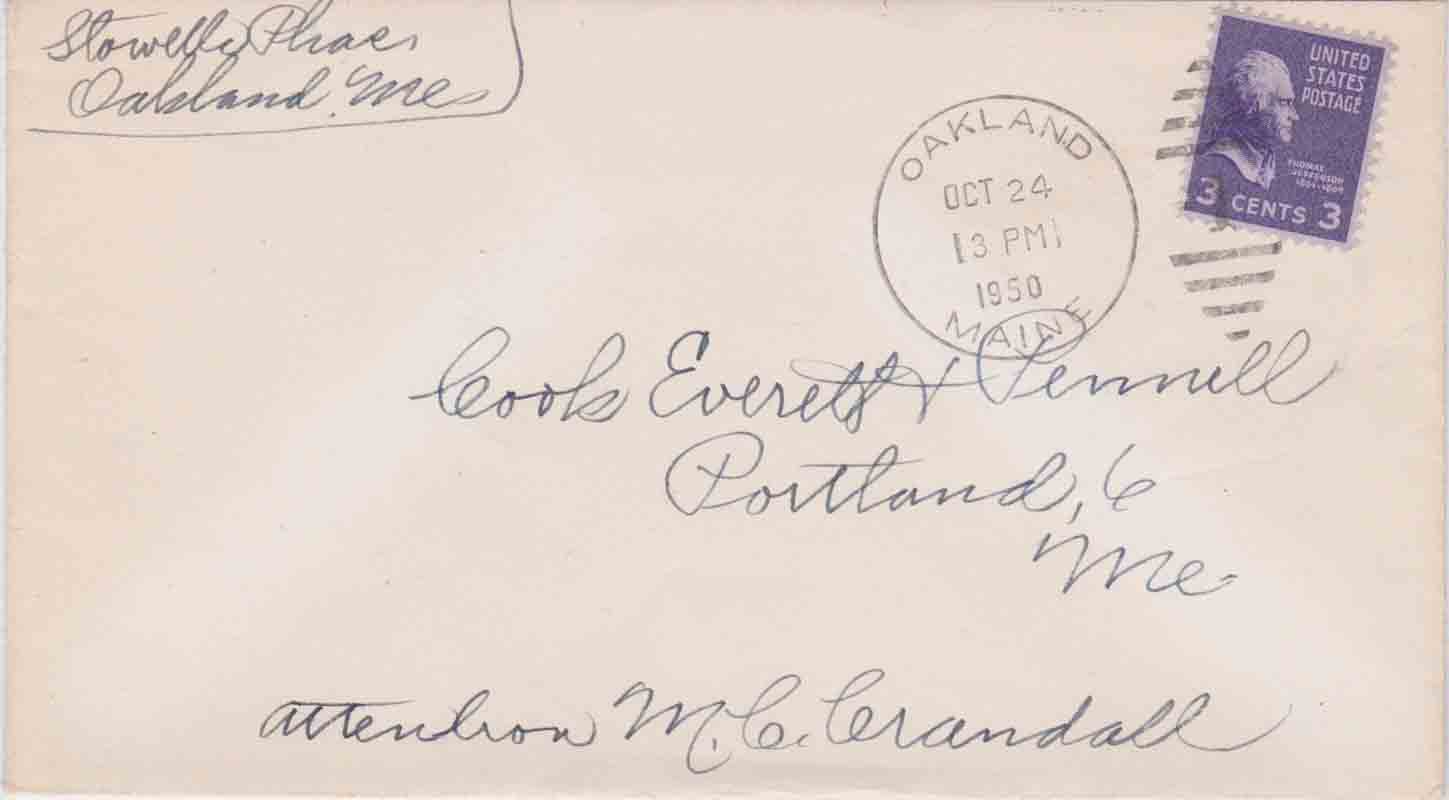 Stowell's Phar.
Oakland, Me
OAKLAND
OCT 24
3 PM
1950
MAINE
UNITED
STATES
POSTAGE
THOMAS
JEFFERSON
1801-1809
3 CENTS 3
Cook Everett & Pennell
Portland, 6
Me
attention M. C. Crandall